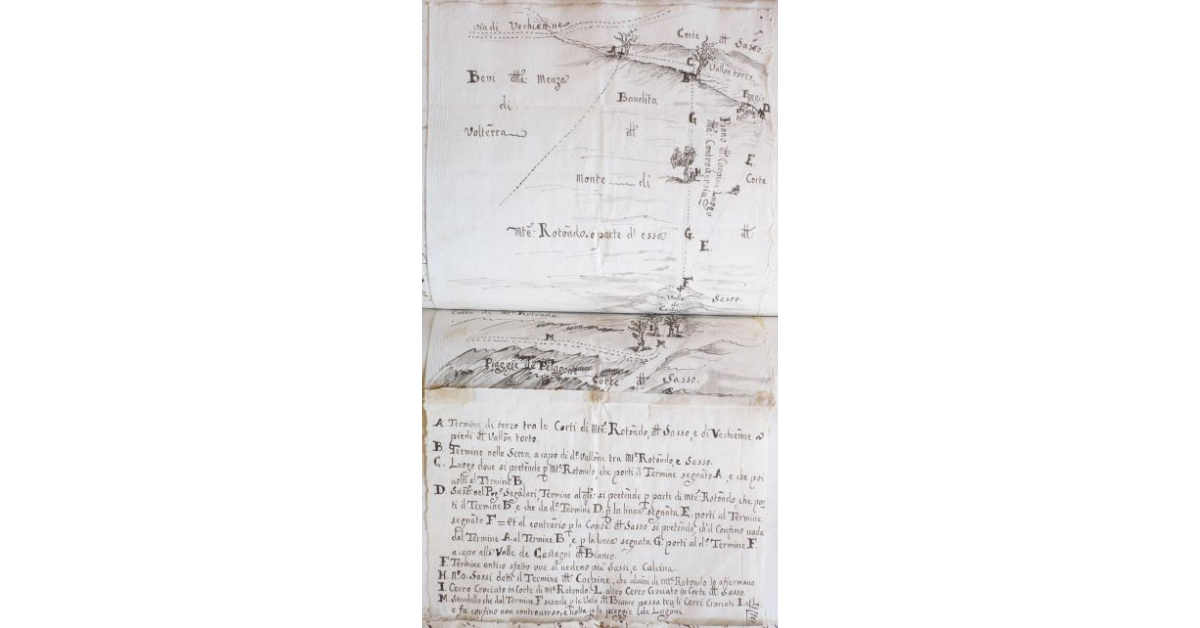 via di Vecchienne
Corte dtt Sasso.
A
C
Vallon torto.
B
Beni dttª Menza
di
Volterra
Bandita
dtt
Poggi
D
G
Piano dtt Carpine Luogo
dtta Controversia
E
Corte
H
Monte di
Mte. Rotondo. o parte d' essa
G.
E.
dtt
F
Valle
de
Sasso.
Corte di Mte Rotondo
I
M
M
Piaggie de
Corte dtt Sasso.
A Termine di terzo tra le Corti di Mte Rotondo, dtt Sasso, e di Vechienne a
piedi dtt Vallon torto.
B. Termine nella Serra a capo di do Vallone tra Mte Rotondo, e Sasso.
C. Luogo doue si pretende p Mte Rotondo che porti il Termine segnato A, e che poi
uolti al Termine B.
D. Sasso nel Pogo Segalari Termine al qle si pretende p parte di Mte Rotondo, che por
ti il Termine B, e che da do Termine D, p la linea segnata E, porti al Termine
segnato F = et al contrario p la Comtà dtt Sasso si pretende, ch'il Confino uada
dal Termine A. al Termine B, e p la linea segnata G. porti al do Termine F.
a capo alla Valle de Castagni dtt Bianco.
F. Termine antico sfatto oue si uedono più Sassi, e Calcina.
H. No 2. Sassi detti il Termine dtt Carpine, che alcuni di Mte Rotondo lo affermano
I. Cerro Crociato in Corte di Mte Rotondo. L. altro Cerro Crociato in Corte dtt Sasso.
M Stradello che dal Termine F scende p la Valle dtt Bianco passa tra li Cerri Crociati I. L.
e fa confino non controverso, e uolta p le piaggie de Lagoni